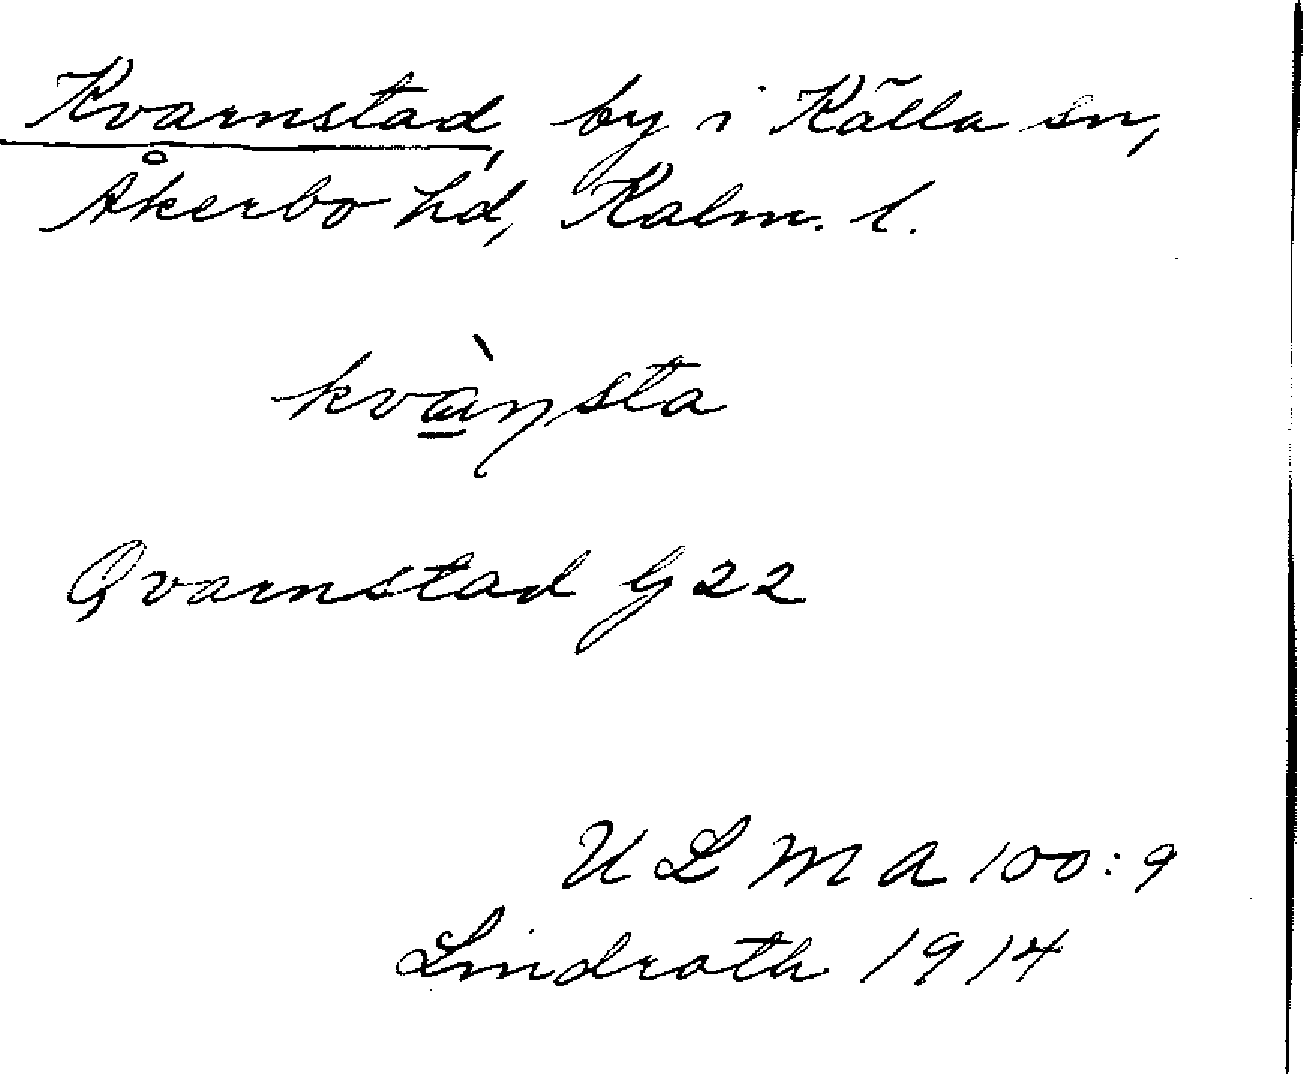 Kvarnstad, by i Källa sn,
Åkerbo hd, Kalm. l.
kvàn̡sta
Qvarnstad G 22
ULMA 100:9
Lindroth 1914